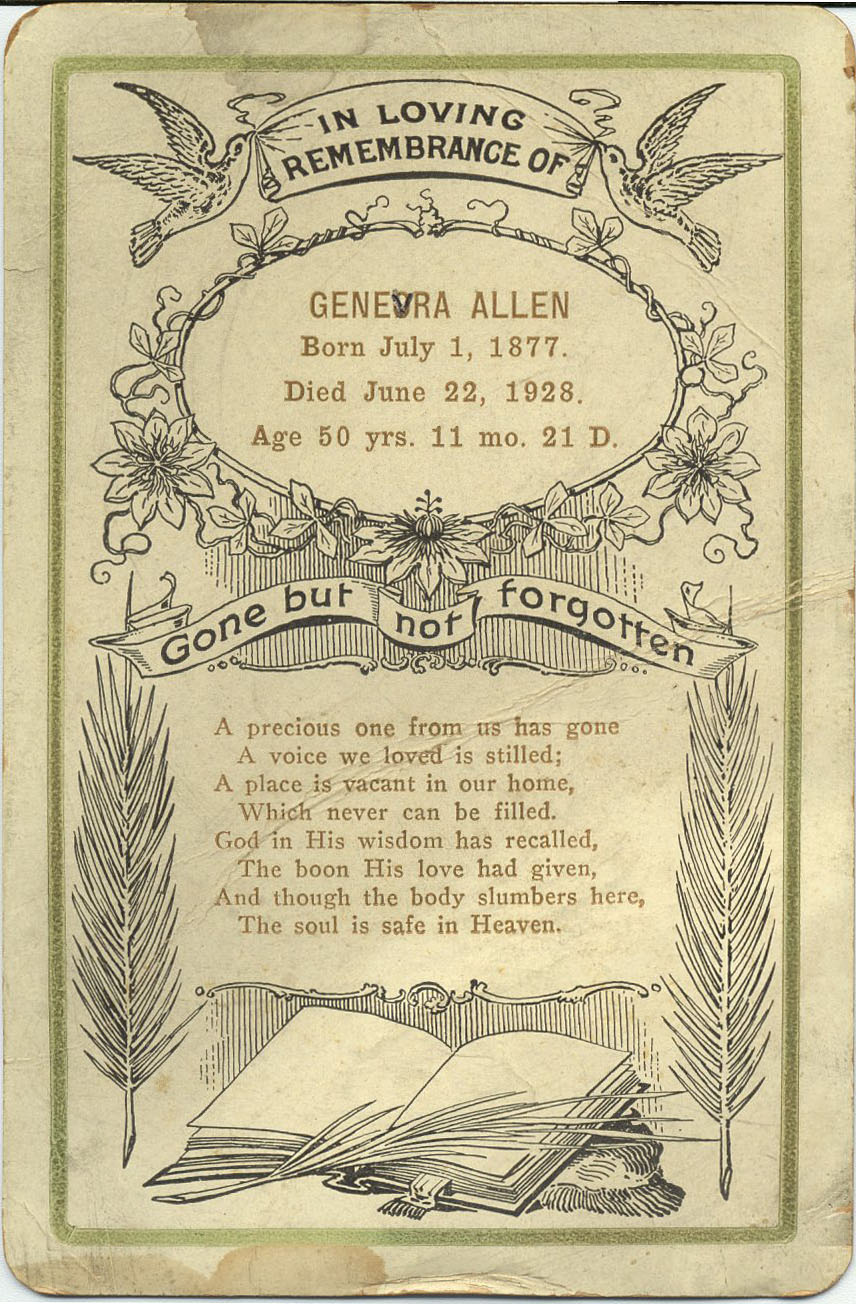 IN LOVING
REMEMBRANCE OF
GENEVRA ALLEN
Born July 1, 1877.
Died June 22, 1928.
Age 50 yrs. 11 mo. 21 D.
Gone but not forgotten
A precious one from us has gone
A voice we loved is stilled;
A place is vacant in our home,
Which never can be filled.
God in His wisdom has recalled,
The boon His love had given,
And though the body slumbers here,
The soul is safe in Heaven.